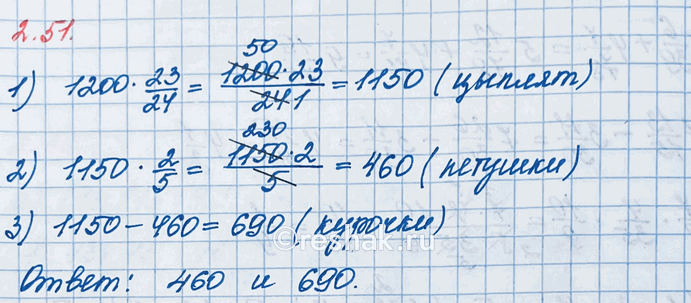 2.51.
1) 1200 · 23/24 = (1200 · 23)/(24 1) = 1150 (цыплят)
50
2) 1150 · 2/5 = (1150 · 2)/5 = 460 (петушки)
230
3) 1150 – 460 = 690 (курочки)
©reshak.ru
Ответ: 460 и 690.